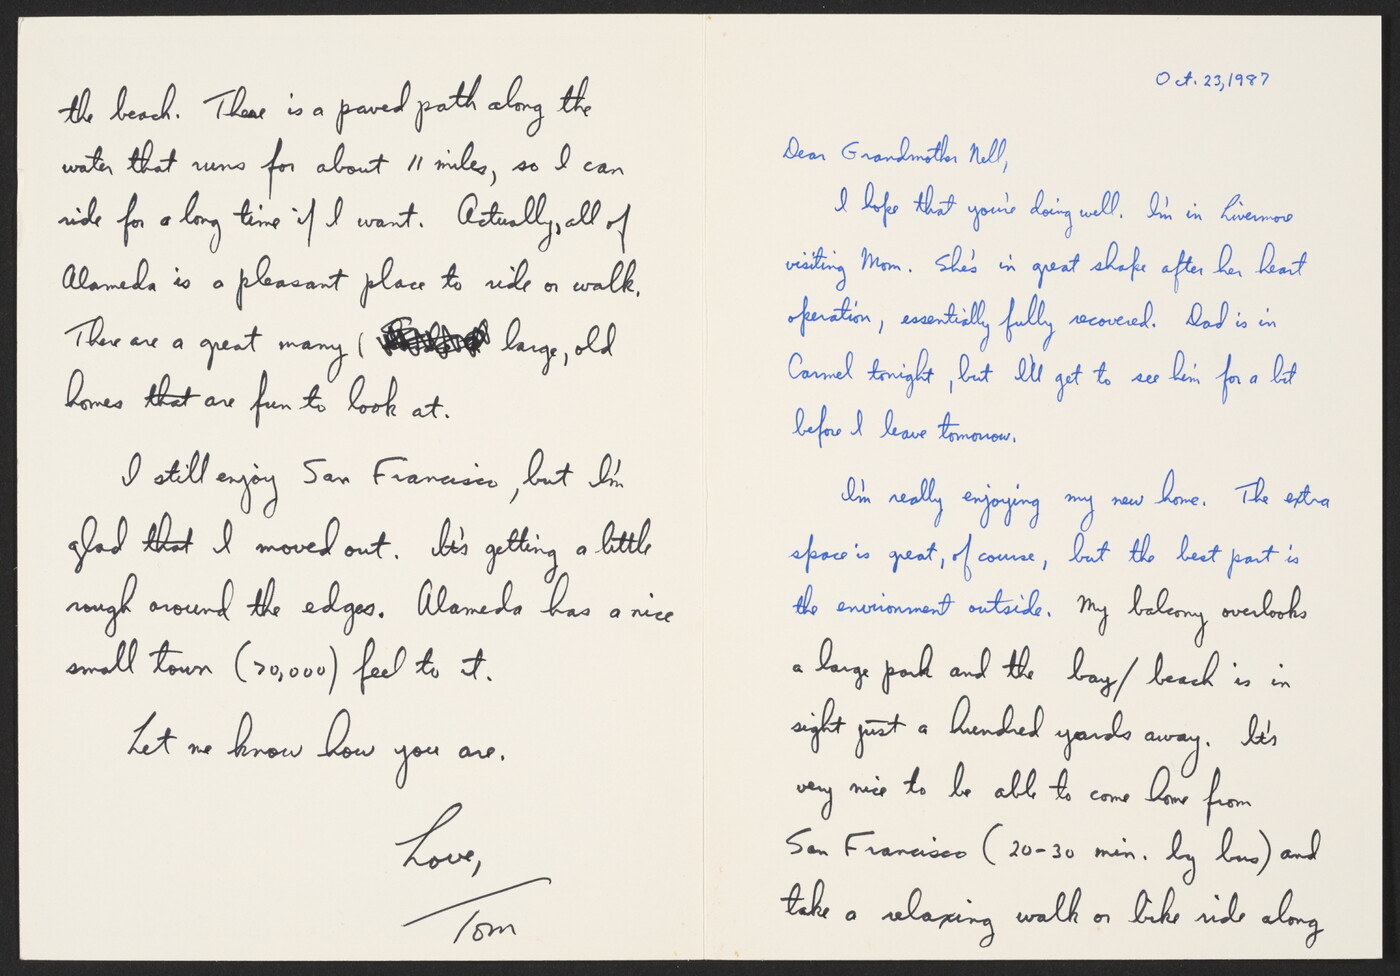 Oct. 23, 1987
Dear Grandmother Nell,
I hope that you're doing well. I'm in Livermore
visiting Mom. She's in great shape after her heart
operation, essentially fully recovered. Dad is in
Carmel tonight, but I'll get to see him for a bit
before I leave tomorrow.
I'm really enjoying my new home. The extra
space is great, of course, but the best part is
the environment outside. My balcony overlooks
a large park and the bay/beach is in
sight just a hundred yards away. It's
very nice to be able to come home from
San Francisco (20-30 min. by bus) and
take a relaxing walk or bike ride along
the beach. There is a paved path along the
water that runs for about 11 miles, so I can
ride for a long time if I want. Actually, all of
Alameda is a pleasant place to ride or walk.
There are a great many large, old
homes that are fun to look at.
I still enjoy San Francisco, but I'm
glad that I moved out. It's getting a little
rough around the edges. Alameda has a nice
small town (70,000) feel to it.
Let me know how you are.
Love,
Tom